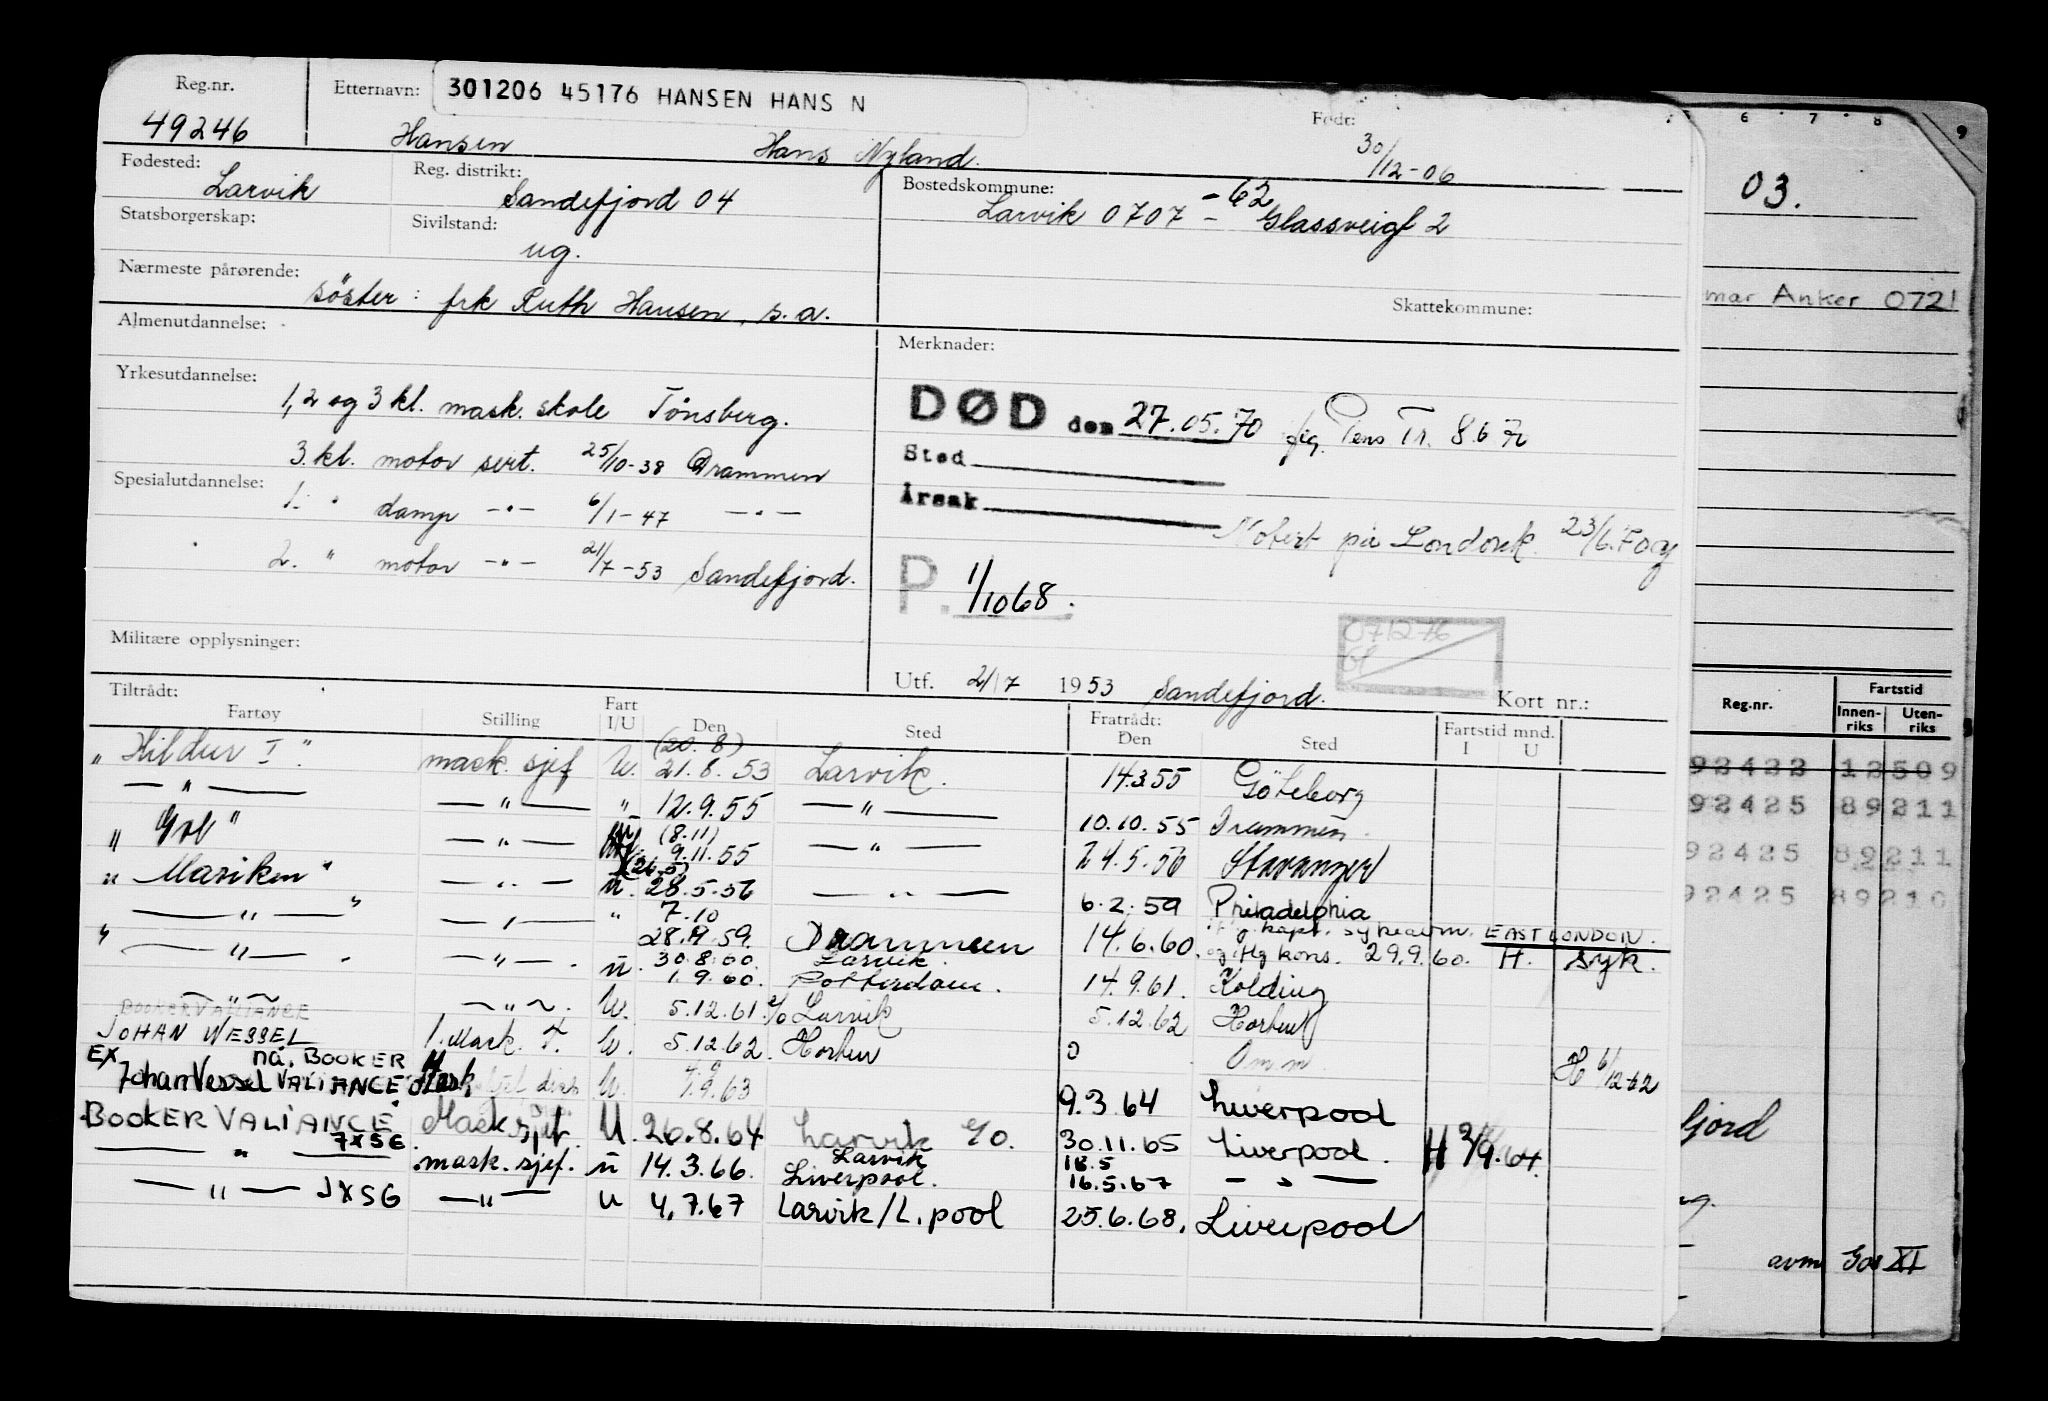 Reg.nr. Etternavn: 301206 45176 HANSEN HANS N Født:
49246 Hansen Hans Nyland. 30/12-06
Fødested: Larvik Reg. distrikt: Sandefjord 04 Bostedskommune: Larvik 0707 - -62 Glassveigt 2
Statsborgerskap: Sivilstand: ug.
Nærmeste pårørende: søster: frk Ruth Hansen, s.a.
Skattekommune:
Almenutdannelse: Merknader:
Yrkesutdannelse: 1, 2 og 3 kl. mask. skole Tönsberg.
DØD den 27.05.70 Pens Tr. 8.6
3. kl. motor sert. 25/10-38 Drammen
Sted
Spesialutdannelse: 1. " damp -"- 6/1-47 -"-
Årsak
Notert på 23/6.70
2. " motor -"- 21/7-53 Sandefjord.
P. 1/10 68.
Militære opplysninger:
Utf. 21/7 1953 Sandefjord. Kort nr.:
Tiltrådt: Fratrådt: Fartstid mnd.
Fartøy Stilling Fart I/U Den Sted Den Sted I U
(20.8)
"Hildur I" mask. sjef U. 21.8.53 Larvik. 14.3.55 Göteborg
-"- -"- " 12.9.55 -"- 10.10.55 Drammen.
(8.11)
"Gol" -"- 9.11.55 -"- 24.5.56 Stavanger
(26.5)
"Mariken" -"- u. 28.5.56 -"- 6.2.59 Philadelphia
7.10
-"- -"- " 28.9.59. Drammen 14.6.60. EAST LONDON.
30.8.60. Larvik.
-"- -"- u. 1.9.60. Rotterdam. 14.9.61. Kolding
kons. 29.9.60. H. syk.
-"- -"- U. 5.12.61. Larvik 5.12.62 Horten
BOOKER VALIANCE
JOHAN WESSEL 1. Mask. U. 5.12.62. Horten 0 Omm. H 6/12-62
EX nå. BOOKER
Johan Wessel VALIANCE. Mask U. 1.9.63 9.3.64 Liverpool
BOOKER VALIANCE Mask sjef. U. 26.8.64 Larvik 30.11.65 Liverpool. H 2/9.64
JXSG
-"- mask. sjef. u 14.3.66. Larvik Liverpool. 18.5 16.5.67 -"-
-"- JXSG -"- u 4.7.67 Larvik/L.pool 25.6.68. Liverpool
6 7 8 9
03.
mar Anker 0721
Reg.nr. Fartstid
Innen-riks Uten-riks
92422 12509
92425 89211
92425 89211
92425 89210
fjord
avm